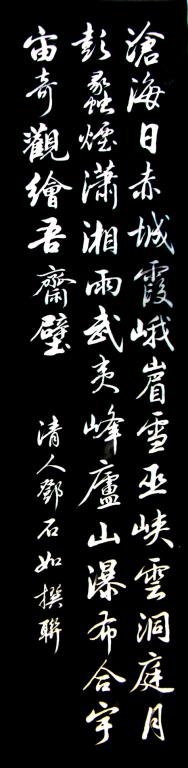 滄海日赤城霞峨眉雪巫峽雲洞庭月
彭蠡煙瀟湘雨武夷峰廬山瀑布合宇
宙奇觀繪吾齋壁
清人鄧石如撰聯